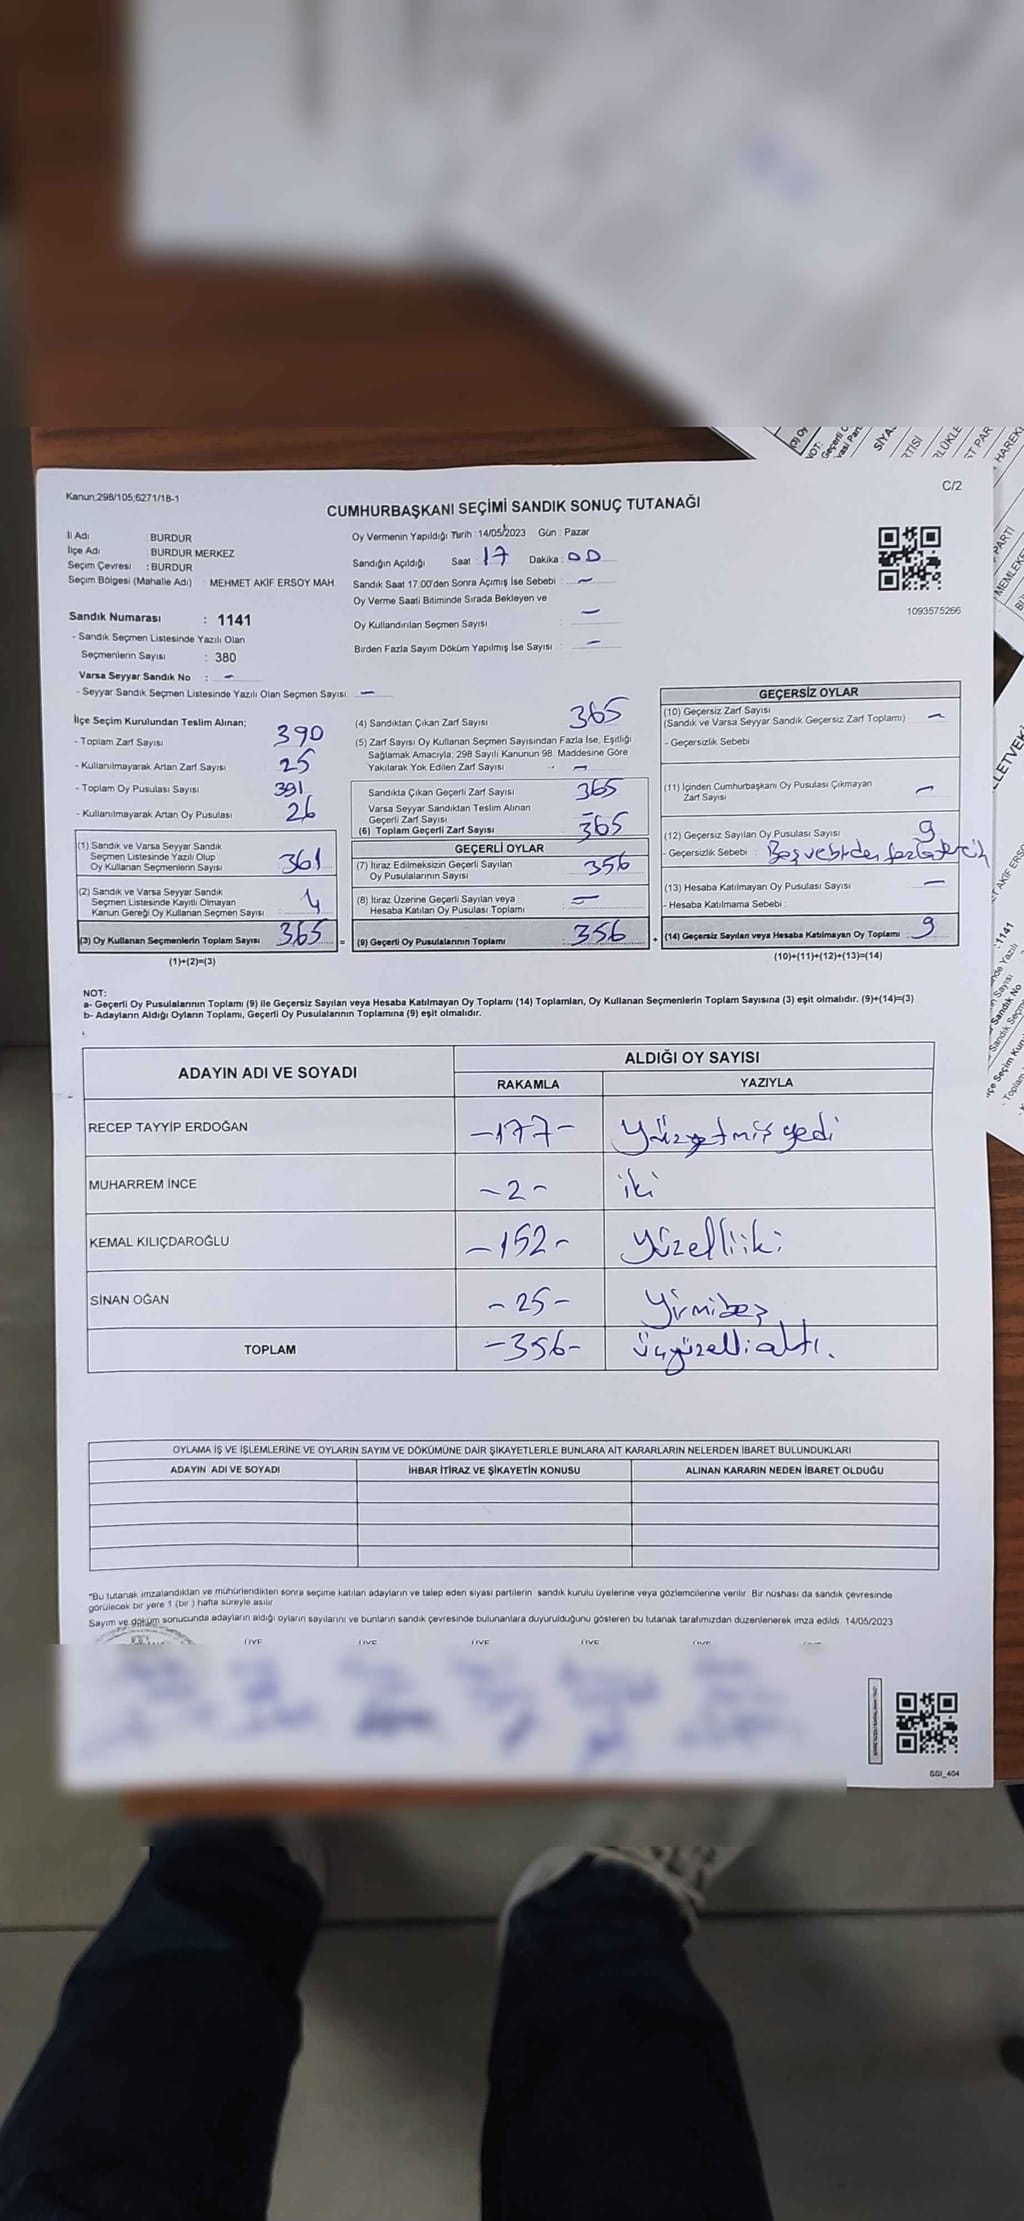 Kanun;298/105;6271/18-1
C/2
CUMHURBAŞKANI SEÇİMİ SANDIK SONUÇ TUTANAĞI
İl Adı : BURDUR
İlçe Adı : BURDUR MERKEZ
Seçim Çevresi : BURDUR
Seçim Bölgesi (Mahalle Adı) : MEHMET AKİF ERSOY MAH.
Sandık Numarası : 1141
- Sandık Seçmen Listesinde Yazılı Olan
Seçmenlerin Sayısı : 380
Varsa Seyyar Sandık No : -
- Seyyar Sandık Seçmen Listesinde Yazılı Olan Seçmen Sayısı: -
Oy Vermenin Yapıldığı Tarih : 14/05/2023 Gün : Pazar
Sandığın Açıldığı Saat : 17 Dakika : 00
Sandık Saat 17:00'den Sonra Açımış İse Sebebi : -
Oy Verme Saati Bitiminde Sırada Bekleyen ve
Oy Kullandırılan Seçmen Sayısı : -
Birden Fazla Sayım Döküm Yapılmış İse Sayısı : -
1093575266
İlçe Seçim Kurulundan Teslim Alınan;
- Toplam Zarf Sayısı 390
- Kullanılmayarak Artan Zarf Sayısı 25
- Toplam Oy Pusulası Sayısı 391
- Kullanılmayarak Artan Oy Pusulası 26
(1) Sandık ve Varsa Seyyar Sandık
Seçmen Listesinde Yazılı Olup
Oy Kullanan Seçmenlerin Sayısı 361
(2) Sandık ve Varsa Seyyar Sandık
Seçmen Listesinde Kayıtlı Olmayan
Kanun Gereği Oy Kullanan Seçmen Sayısı 4
(3) Oy Kullanan Seçmenlerin Toplam Sayısı 365 =
(1)+(2)=(3)
(4) Sandıktan Çıkan Zarf Sayısı 365
(5) Zarf Sayısı Oy Kullanan Seçmen Sayısından Fazla İse, Eşitliği
Sağlamak Amacıyla; 298 Sayılı Kanunun 98. Maddesine Göre
Yakılarak Yok Edilen Zarf Sayısı : -
Sandıkta Çıkan Geçerli Zarf Sayısı 365
Varsa Seyyar Sandıktan Teslim Alınan
Geçerli Zarf Sayısı -
(6) Toplam Geçerli Zarf Sayısı 365
GEÇERLİ OYLAR
(7) İtiraz Edilmeksizin Geçerli Sayılan
Oy Pusulalarının Sayısı 356
(8) İtiraz Üzerine Geçerli Sayılan veya
Hesaba Katılan Oy Pusulası Toplamı : -
(9) Geçerli Oy Pusulalarının Toplamı 356 +
GEÇERSİZ OYLAR
(10) Geçersiz Zarf Sayısı
(Sandık ve Varsa Seyyar Sandık Geçersiz Zarf Toplamı) -
- Geçersizlik Sebebi :
(11) İçinden Cumhurbaşkanı Oy Pusulası Çıkmayan
Zarf Sayısı -
(12) Geçersiz Sayılan Oy Pusulası Sayısı 9
- Geçersizlik Sebebi : Boş ve birden fazla tercih
(13) Hesaba Katılmayan Oy Pusulası Sayısı -
- Hesaba Katılmama Sebebi :
(14) Geçersiz Sayılan veya Hesaba Katılmayan Oy Toplamı 9
(10)+(11)+(12)+(13)=(14)
NOT:
a- Geçerli Oy Pusulalarının Toplamı (9) ile Geçersiz Sayılan veya Hesaba Katılmayan Oy Toplamı (14) Toplamları, Oy Kullanan Seçmenlerin Toplam Sayısına (3) eşit olmalıdır. (9)+(14)=(3)
b- Adayların Aldığı Oyların Toplamı, Geçerli Oy Pusulalarının Toplamına (9) eşit olmalıdır.
ADAYIN ADI VE SOYADI ALDIĞI OY SAYISI
RAKAMLA YAZIYLA
RECEP TAYYİP ERDOĞAN -177- Yüzyetmişyedi
MUHARREM İNCE -2- iki
KEMAL KILIÇDAROĞLU -152- Yüzelliiki
SİNAN OĞAN -25- Yirmibeş
TOPLAM -356- üçyüzellialtı.
OYLAMA İŞ VE İŞLEMLERİNE VE OYLARIN SAYIM VE DÖKÜMÜNE DAİR ŞİKAYETLERLE BUNLARA AİT KARARLARIN NELERDEN İBARET BULUNDUKLARI
ADAYIN ADI VE SOYADI İHBAR İTİRAZ VE ŞİKAYETİN KONUSU ALINAN KARARIN NEDEN İBARET OLDUĞU
*Bu tutanak imzalandıktan ve mühürlendikten sonra seçime katılan adayların ve talep eden siyasi partilerin sandık kurulu üyelerine veya gözlemcilerine verilir. Bir nüshası da sandık çevresinde
görülecek bir yere 1 (bir ) hafta süreyle asılır
Sayım ve döküm sonucunda adayların aldığı oyların sayılarını ve bunların sandık çevresinde bulunanlara duyurulduğunu gösteren bu tutanak tarafımızdan düzenlenerek imza edildi. 14/05/2023
ÜYE ÜYE ÜYE ÜYE ÜYE
SGI_404